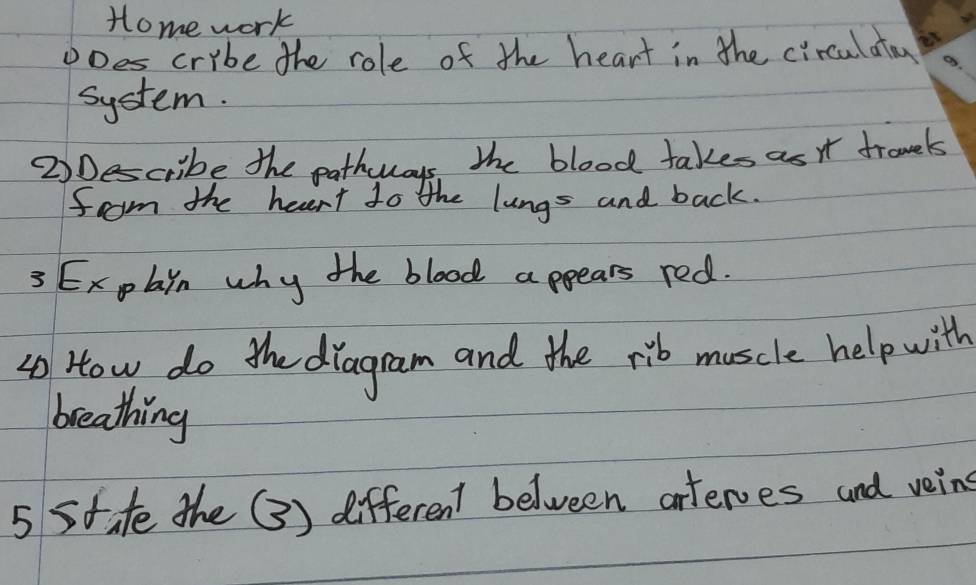 Home work
1) Describe the role of the heart in the circulatory
system.
2) Describe the pathways the blood takes as it travels
from the heart to the lungs and back.
3 Explain why the blood appears red.
4) How do the diagram and the rib muscle help with
breathing
5 State the (3) different between arteries and veins